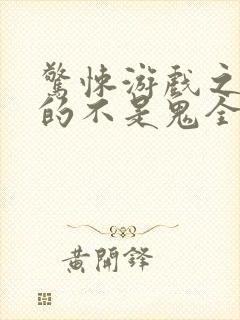 驚悚游戲之
的不是鬼全
黃開鋒